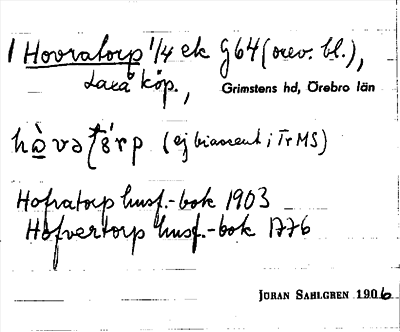 1 Hovratorp 1/4 ek G64 (orev. bl.),
Laxå köp.,
Grimstens hd, Örebro län
(ej biaccent i Tr MS)
Hofratorp husf.-bok 1903
Hofvertorp husf.-bok 1776
JÖRAN SAHLGREN 1906